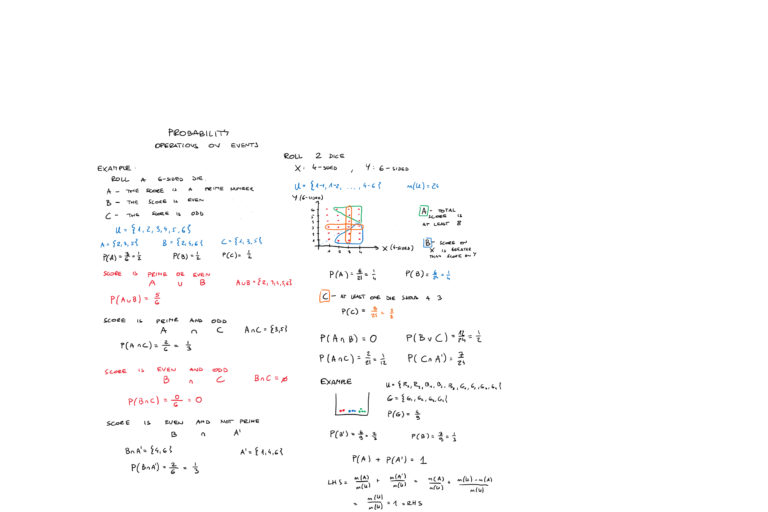 PROBABILITY
OPERATIONS ON EVENTS
EXAMPLE:
ROLL A 6-SIDED DIE.
A – THE SCORE IS A PRIME NUMBER
B – THE SCORE IS EVEN
C – THE SCORE IS ODD
U = {1, 2, 3, 4, 5, 6}
A = {2, 3, 5} B = {2, 4, 6} C = {1, 3, 5}
P(A) = 3/6 = 1/2 P(B) = 1/2 P(C) = 1/2
SCORE IS PRIME OR EVEN
A ∪ B A∪B = {2, 3, 4, 5, 6}
P(A∪B) = 5/6
SCORE IS PRIME AND ODD
A ∩ C A∩C = {3, 5}
P(A∩C) = 2/6 = 1/3
SCORE IS EVEN AND ODD
B ∩ C B∩C = ∅
P(B∩C) = 0/6 = 0
SCORE IS EVEN AND NOT PRIME
B ∩ A'
B∩A' = {4, 6} A' = {1, 4, 6}
P(B∩A') = 2/6 = 1/3
ROLL 2 DICE
X: 4-SIDED , Y: 6-SIDED
U = {1-1, 1-2, ..., 4-6} n(U) = 24
Y (6-SIDED)
6
5
4
3
2
1
1 2 3 4
X (4-SIDED)
A – TOTAL
SCORE IS
AT LEAST 8
B – SCORE ON
X IS GREATER
THAN SCORE ON Y
P(A) = 6/24 = 1/4 P(B) = 6/24 = 1/4
C – AT LEAST ONE DIE SHOWS A 3
P(C) =
P(A∩B) = 0 P(B∪C) = 12/24 = 1/2
P(A∩C) = 2/24 = 1/12 P(C∩A') = 7/24
EXAMPLE
P(B) = 3/9 = 1/3
P(A) + P(A') = 1
LHS = n(A)/n(U) + n(A')/n(U) = n(A)/n(U) + n(U) - n(A)/n(U)
= n(U)/n(U) = 1 = RHS